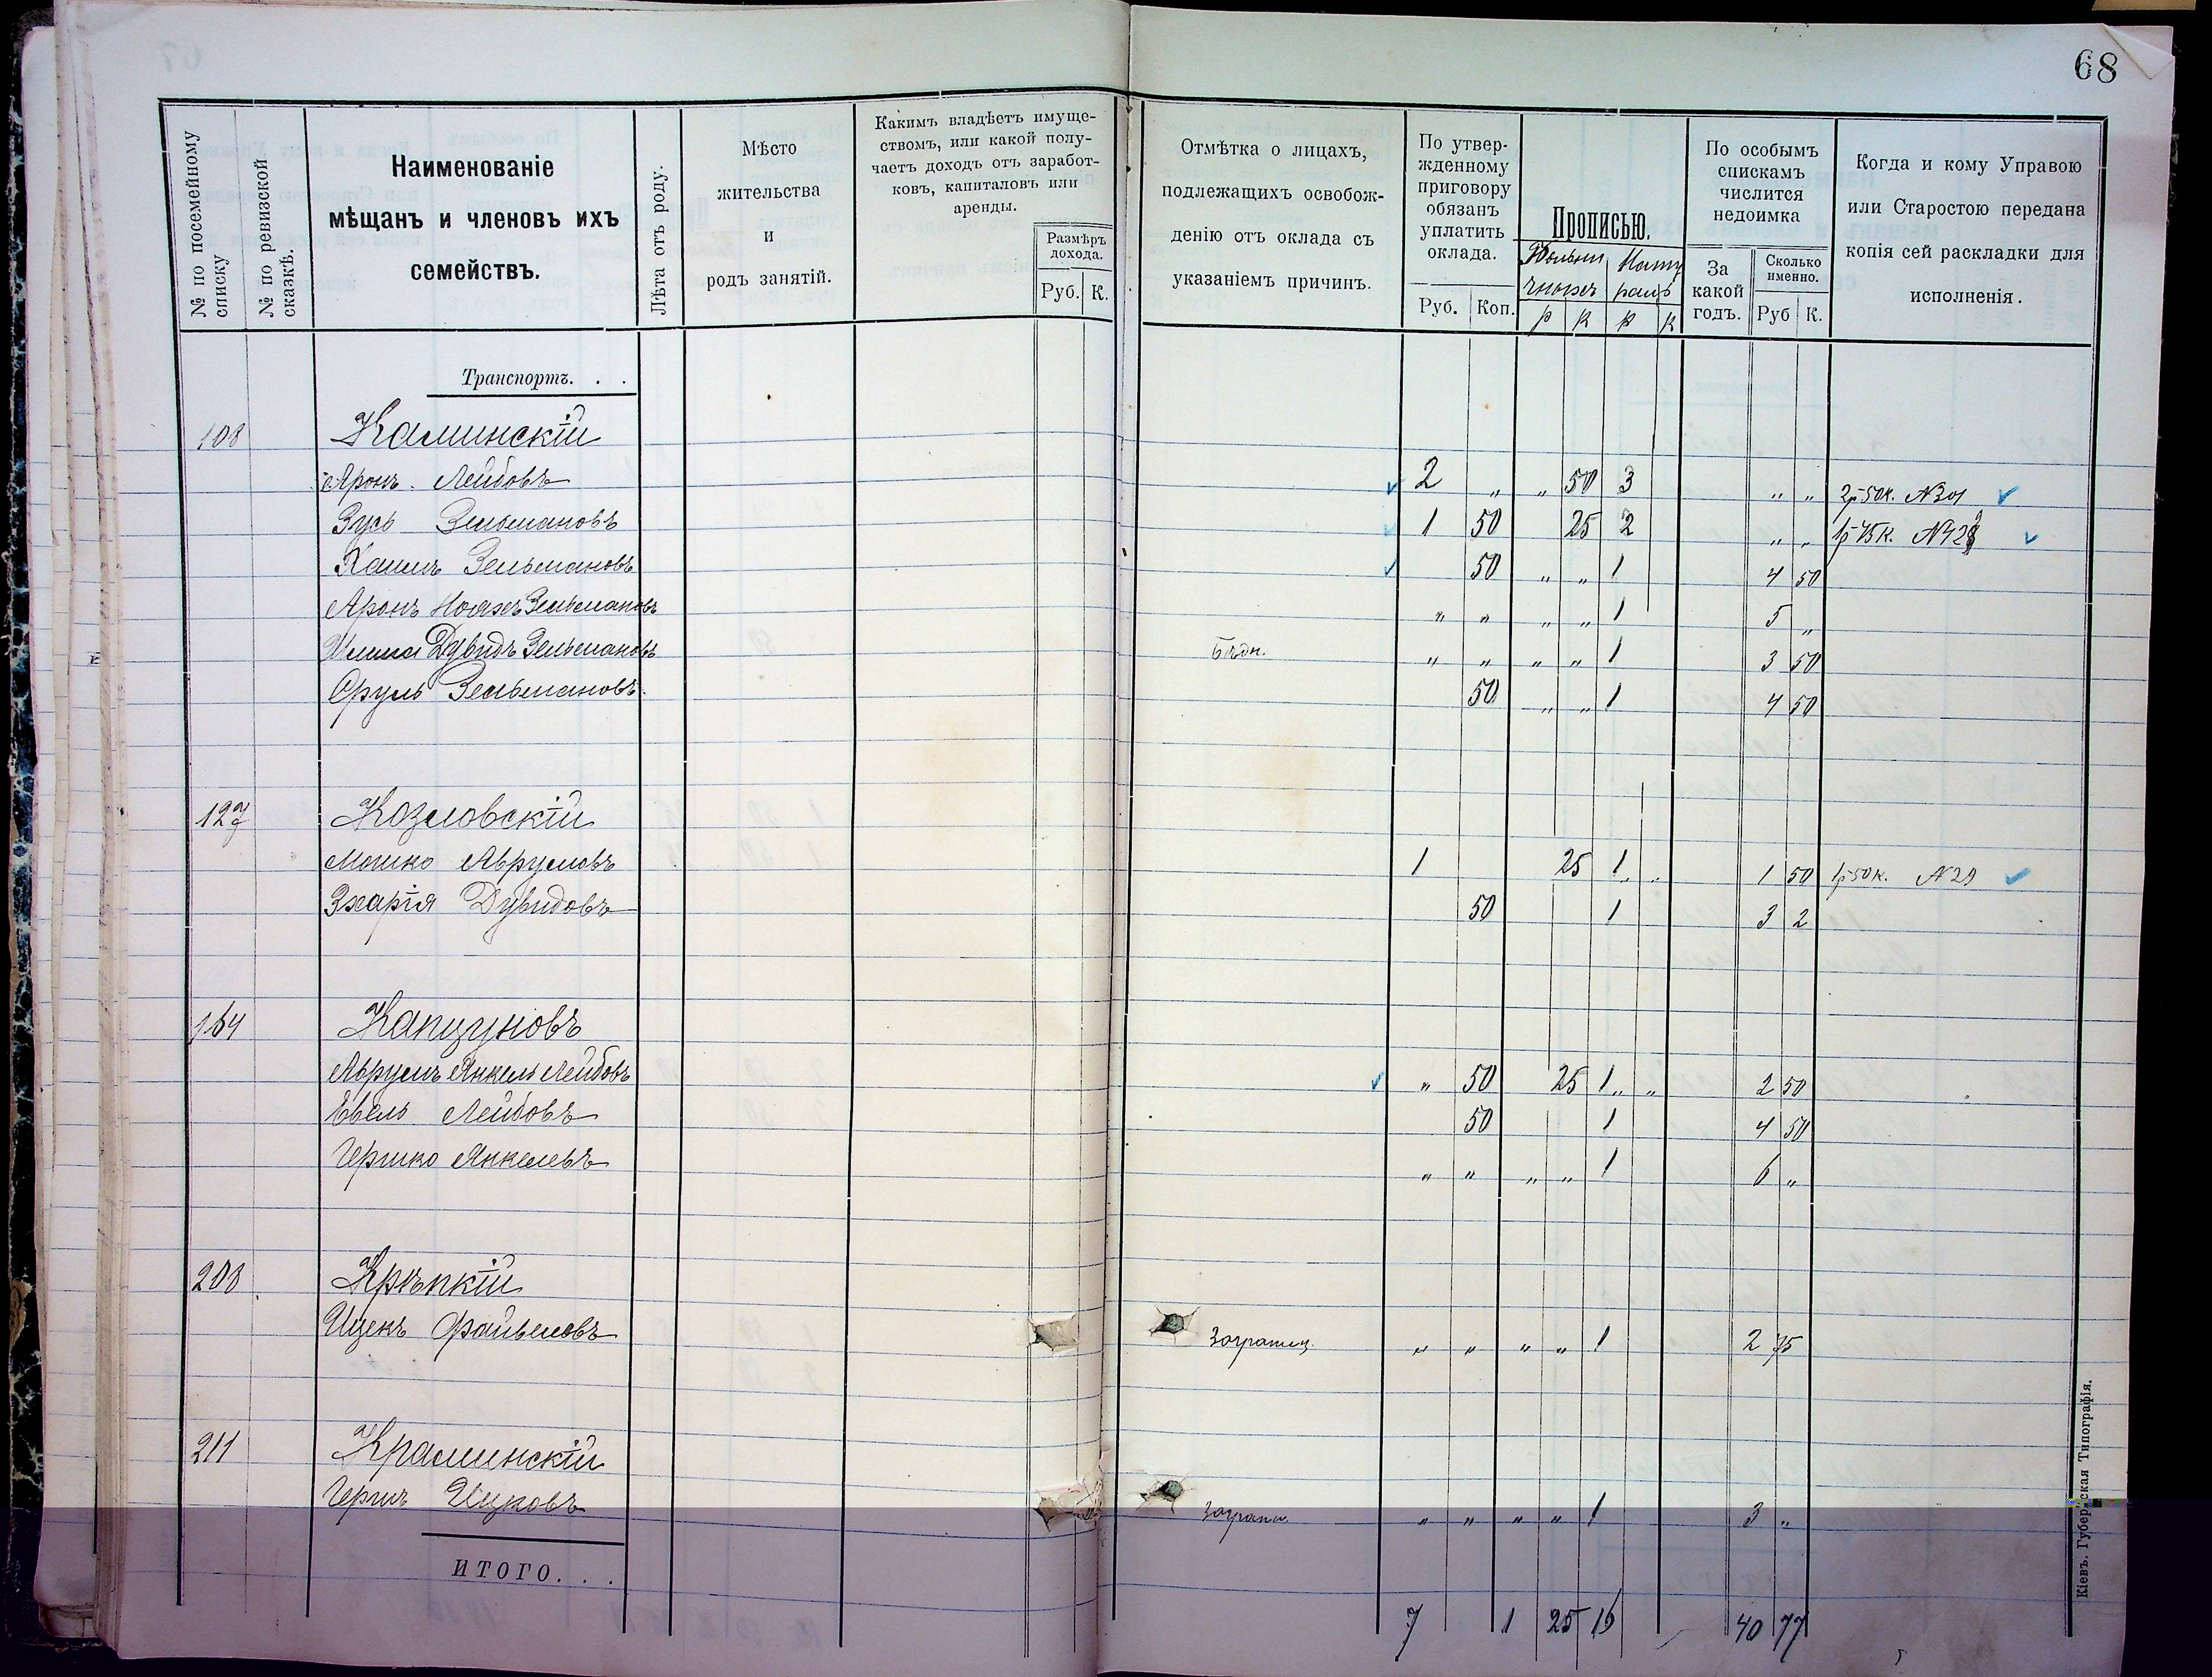 68
№ по посемейному списку
№ по ревизской сказкѣ.
Наименованіе
мѣщанъ и членовъ ихъ
семействъ.
Лѣта отъ роду.
Мѣсто
жительства
и
родъ занятій.
Какимъ владѣетъ имуще-
ствомъ, или какой полу-
чаетъ доходъ отъ заработ-
ковъ, капиталовъ или
аренды.
Размѣръ
дохода.
Руб. К.
Отмѣтка о лицахъ,
подлежащихъ освобож-
денію отъ оклада съ
указаніемъ причинъ.
По утвер-
жденному
приговору
обязанъ
уплатить
оклада.
Руб. Коп.
Прописью.
р к р к
По особымъ
спискамъ
числится
недоимка
За
какой
годъ.
Сколько
именно.
Руб К.
Когда и кому Управою
или Старостою передана
копія сей раскладки для
исполненія.
Транспортъ. . .
108 Каминскій
Аронъ Лейбовъ 2 „ „ 50 3 „ „ 2р50к. N301
Зусь Зельмановъ 1 50 25 2 „ „ 1р75к.
Хаимъ Зельмановъ 50 „ „ 1 4 50
Аронъ Зельмановъ „ „ „ „ 1 5 „
Дувидъ Зельмановъ Бѣдн. „ „ „ „ 1 3 50
Сруль Зельмановъ 50 „ „ 1 4 50
127 Козловскій
Мошко Аврумовъ 1 25 1 „ „ 1 50 1р50к. N29
Зхарія Дувидовъ 50 1 3 2
164 Капцуновъ
Аврумъ Янкель Лейбовъ „ 50 25 1 „ „ 2 50
Евель Лейбовъ 50 1 4 50
Гершко Янкелевъ „ „ „ „ 1 6 „
208 Крѣпкій
Ицекъ Файвелевъ Заграниц. „ „ „ „ 1 2 75
211 Краминскій
Гершъ Ицковъ Загран. „ „ „ „ 1 3 „
ИТОГО. . .
7 1 25 16 40 77
Кіевъ. Губернская Типографія.